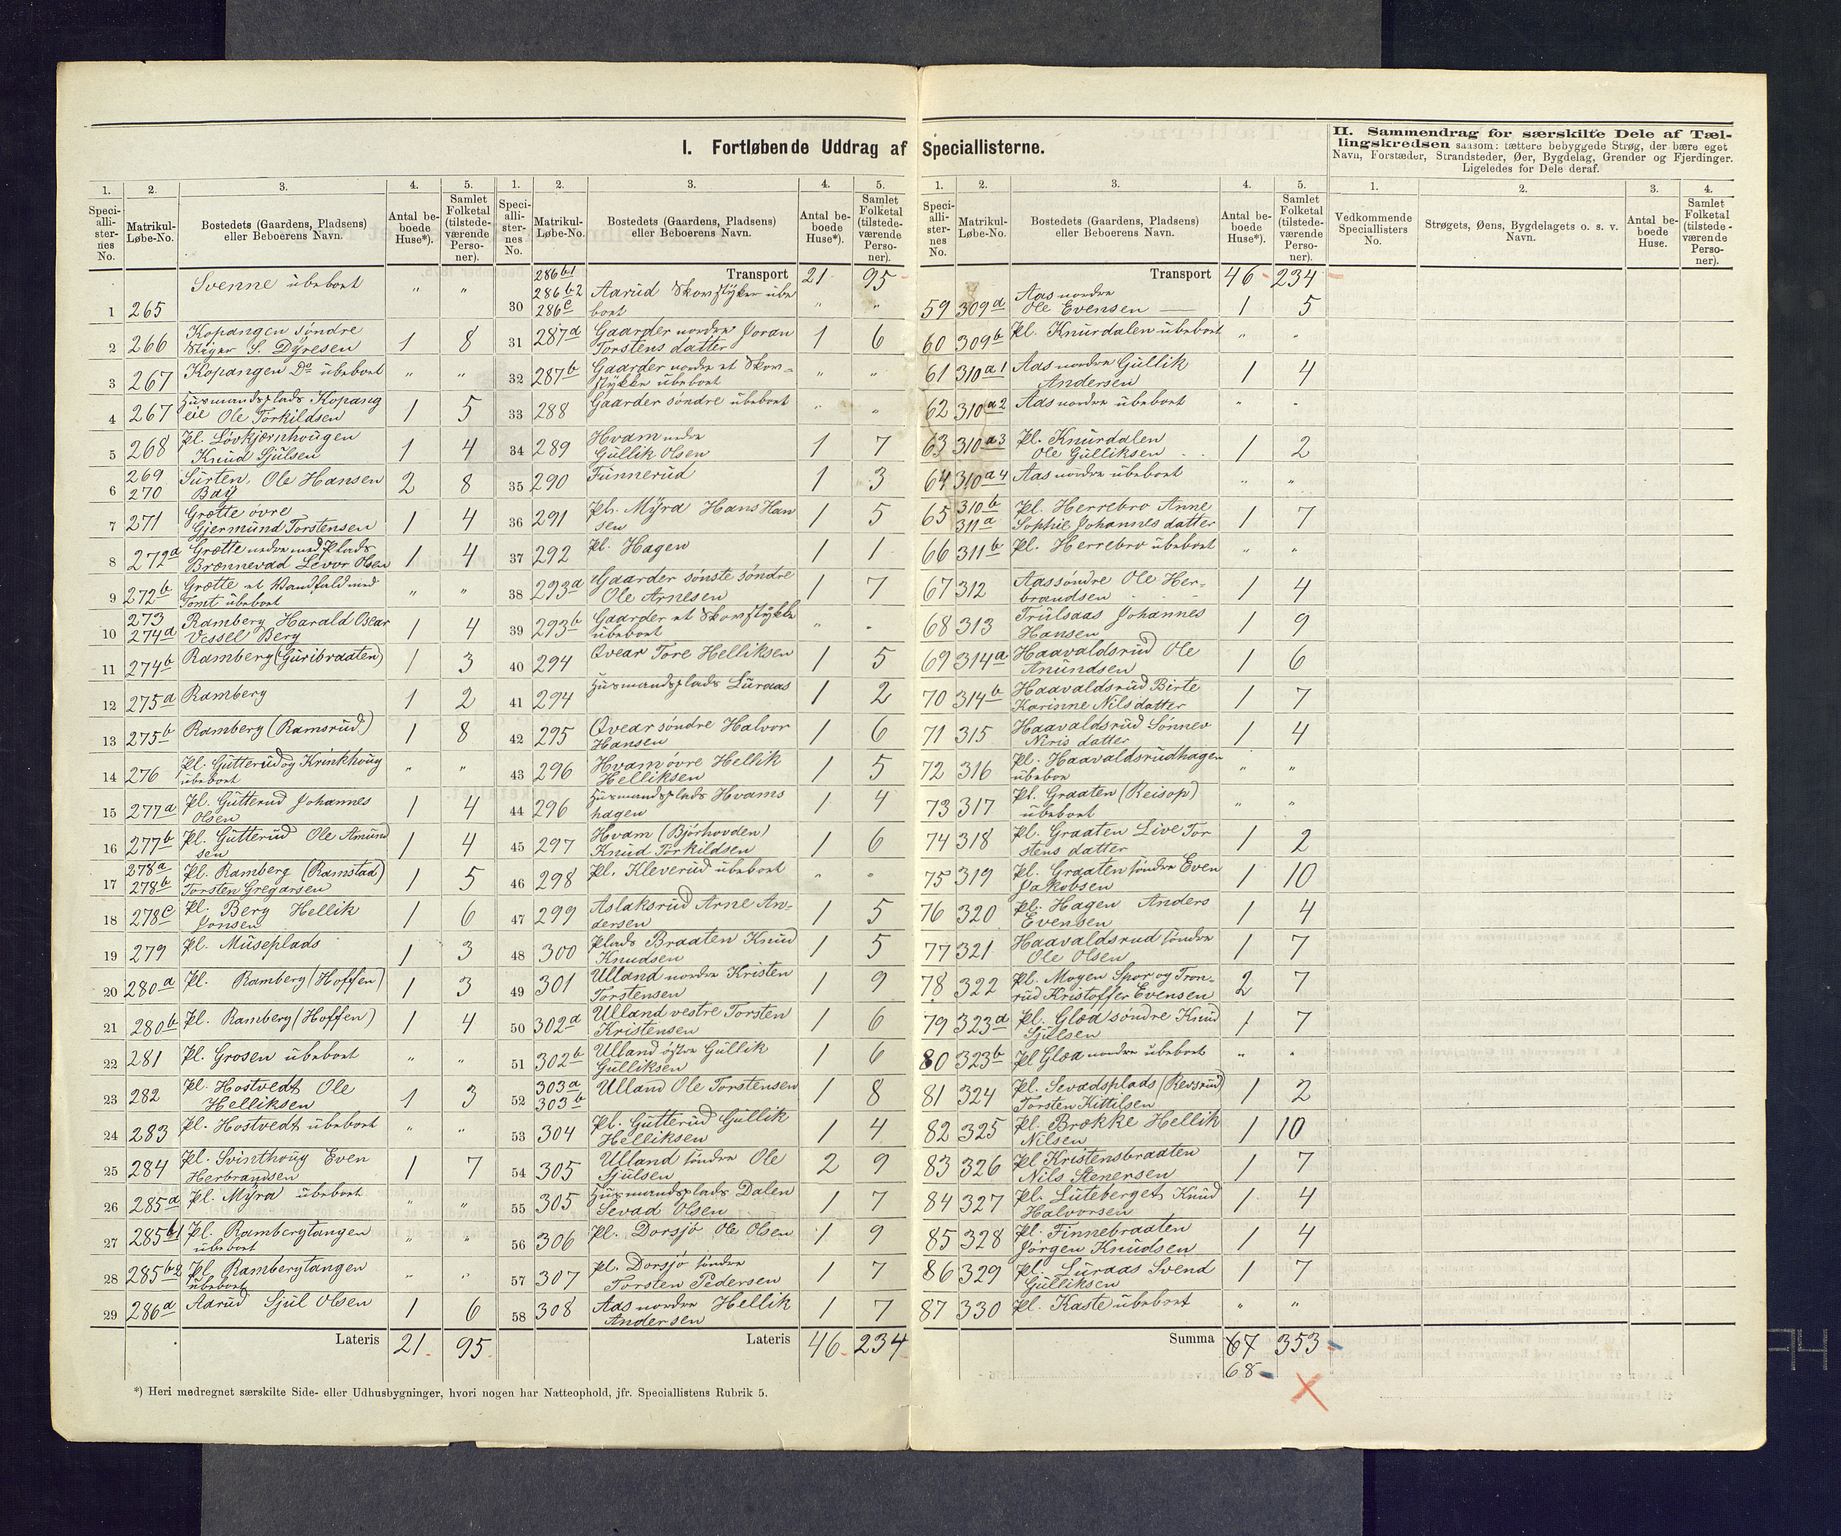 I. Fortløbende Uddrag af Speciallisterne.
II. Sammendrag for særskilte Dele af Tællingskredsen saasom: tættere bebyggede Strøg, der bære eget
Navn, Forstæder, Strandsteder, Øer, Bygdelag, Grender og Fjerdinger.
Ligeledes for Dele deraf.
1. 2. 3. 4. 5.
Speciallisternes No. Matrikul-Løbe-No. Bostedets (Gaardens, Pladsens) eller Beboerens Navn. Antal beboede Huse*). Samlet Folketal (tilstedeværende Personer).
1 265 Svenne ubeboet " "
2 266 Kopangen søndre S. Dyresen 1 8
3 267 Kopangen Do ubeboet " "
4 267 Husmandsplads Kopang eie Ole Torkildsen 1 5
5 268 Pl. Løvkjernhougen Knud Sjulsen 1 4
6 269 270 Surten, Ole Hansen Bay 2 8
7 271 Grøtte øvre Gjermund Torstensen 1 4
8 272a Grøtte nedre med Plads Brønnevad Levor Olsen 1 4
9 272b Grøtte et Vandfald med Tomt ubeboet " "
10 273 274a Ramberg Harald Oscar Vessel Berg 1 4
11 274b Ramberg (Guribraaten) 1 3
12 275a Ramberg 1 2
13 275b Ramberg (Ramsrud) 1 8
14 276 Pl. Gutterud og Krinkhoug ubeboet " "
15 277a Pl. Gutterud Johannes Olsen 1 4
16 277b Pl. Gutterud Ole Amundsen 1 4
17 278a 278b Pl. Ramberg (Ramstad) Torsten Gregarsen 1 5
18 278c Pl. Berg Hellik Jonsen 1 6
19 279 Pl. Museplads 1 3
20 280a Pl. Ramberg (Hoffen) 1 3
21 280b Pl. Ramberg (Hoffen) 1 4
22 281 Pl. Grosen ubeboet " "
23 282 Pl. Hostvedt Ole Helliksen 1 3
24 283 Pl. Hostvedt ubeboet " "
25 284 Pl. Svinthoug Even Herbrandsen 1 7
26 285a Pl. Myra ubeboet " "
27 285b1 Pl. Rambergtangen ubeboet " "
28 285b2 Pl. Rambergtangen ubeboet " "
29 286a Aarud Sjul Olsen 1 6
Lateris 21 95
1. 2. 3. 4. 5.
Speciallisternes No. Matrikul-Løbe-No. Bostedets (Gaardens, Pladsens) eller Beboerens Navn. Antal beboede Huse*). Samlet Folketal (tilstedeværende Personer).
Transport 21 95
30 286b1 286b2 286c Aarud Skovstyker ubeboet " "
31 287a Gaarder nordre Joran Torstensdatter 1 6
32 287b Gaarder nordre et Skovstykke ubeboet " "
33 288 Gaarder søndre ubeboet " "
34 289 Hvam nedre Gullik Olsen 1 7
35 290 Funnerud 1 3
36 291 Pl. Myra Hans Hansen 1 5
37 292 Pl. Hagen 1 1
38 293a Gaarder sønste søndre Ole Arnesen 1 7
39 293b Gaarder et Skovstykke ubeboet " "
40 294 Qvear Tore Helliksen 1 5
41 294 Husmandsplads Luraas 1 2
42 295 Qvear søndre Halvor Hansen 1 6
43 296 Hvam øvre Hellik Helliksen 1 5
44 296 Husmandsplads Hvamshagen 1 4
45 297 Hvam (Bjørhovden) Knud Torkildsen 1 6
46 298 Pl. Kleverud ubeboet " "
47 299 Aslaksrud Arne Andersen 1 5
48 300 Plads Braaten Knud Knudsen 1 5
49 301 Ulland nordre Kristen Torstensen 1 9
50 302a Ulland vestre Torsten Kristensen 1 6
51 302b Ulland østre Gullik Gulliksen 1 6
52 303a 303b Ulland Ole Torstensen 1 8
53 304 Pl. Gutterud Gullik Helliksen 1 4
54 305 Ulland søndre Ole Sjulsen 2 9
55 305 Husmandsplads Dalen Sevad Olsen 1 7
56 306 Pl. Dorsjø Ole Olsen 1 9
57 307 Pl. Dorsjø søndre Torsten Pedersen 1 7
58 308 Aas nordre Hellik Andersen 1 7
Lateris 46 234
*) Heri medregnet særskilte Side- eller Udhusbygninger, hvori nogen har Natteophold, jfr. Speciallistens Rubrik 5.
1. 2. 3. 4. 5.
Speciallisternes No. Matrikul-Løbe-No. Bostedets (Gaardens, Pladsens) eller Beboerens Navn. Antal beboede Huse*). Samlet Folketal (tilstedeværende Personer).
Transport 46 234
59 309a Aas nordre Ole Evensen 1 5
60 309b Pl. Knurdalen ubeboet " "
61 310a1 Aas nordre Gullik Andersen 1 4
62 310a2 Aas nordre ubeboet " "
63 310a3 Pl. Knurdalen Ole Gulliksen 1 2
64 310a4 Aas nordre ubeboet " "
65 310b 311a Pl. Herrebro Anne Sophie Johannesdatter 1 7
66 311b Pl. Herrebro ubeboet " "
67 312 Aas søndre Ole Herbrandsen 1 4
68 313 Trulsaas Johannes Hansen 1 9
69 314a Haavaldsrud Ole Amundsen 1 6
70 314b Haavaldsrud Birte Karinne Nilsdatter 1 7
71 315 Haavaldsrud Sønnev Niris datter 1 4
72 316 Pl. Haavaldsrudhagen ubeboe " "
73 317 Pl. Graaten (Reisop) ubeboet " "
74 318 Pl. Graaten Live Torstensdatter 1 2
75 319 Pl. Graaten søndre Even Jakobsen 1 10
76 320 Pl. Hagen Anders Evensen 1 4
77 321 Haavaldsrud søndre Ole Olsen 1 7
78 322 Pl. Mogen Spor og Tronrud Kristoffer Evensen 2 7
79 323a Pl. Glød søndre Knud Sjulsen 1 7
80 323b Pl. Glød nordre ubeboet " "
81 324 Pl. Sevadsplads (Revsrud) Torsten Kittilsen 1 2
82 325 Pl. Brøkke Hellik Nilsen 1 10
83 326 Pl. Kristensbraaten Nils Stenersen 1 7
84 327 Pl. Luteberget Knud Halvorsen 1 4
85 328 Pl. Finnebraaten Jørgen Knudsen 1 4
86 329 Pl. Luraas Svend Gulliksen 1 7
87 330 Pl. Kaste ubeboet " "
Summa 67 353
68
1. 2. 3. 4.
Vedkommende Speciallisters No. Strøgets, Øens, Bygdelagets o. s. v. Navn. Antal beboede Huse. Samlet Folketal (tilstedeværende Personer).